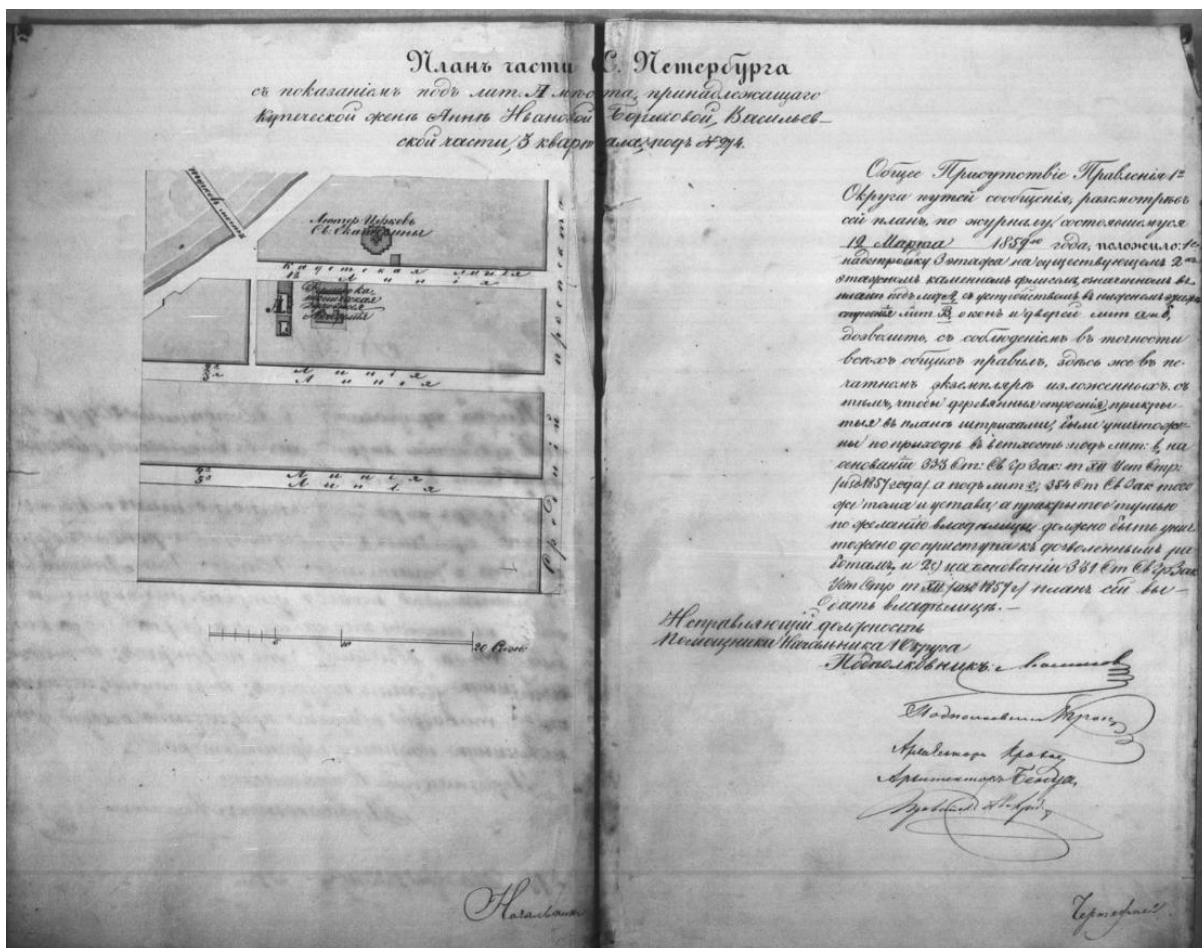 Планъ части С. Петербурга
съ показаніемъ подъ лит. А мѣста, принадлежащаго
купеческой женѣ Аннѣ Ивановой Борисовой, Васильев-
ской части, 3 квартала, подъ №
Тучковъ мостъ
Лютер. Церковь
Св. Екатерины
Кадетская линія
1я Линія
Академія
А
2я Линія
3я Линія
4я Линія
5я Линія
Средній проспектъ
20
Общее Присутствіе Правленія 1го
Округа путей сообщенія, разсмотрѣвъ
сей планъ, по журналу, состоявшемуся
19 Марта 1859го года, положило: 1е
надстройку 3 этажа на существующемъ 2хъ
этажномъ каменномъ флигелѣ, означенномъ въ
планѣ подъ съ устройствомъ въ нижнемъ этажѣ
строенія лит. В, оконъ и дверей лит. а и б,
дозволить, съ соблюденіемъ въ точности
всѣхъ общихъ правилъ, здѣсь же въ пе-
чатномъ экземплярѣ изложенныхъ, съ
тѣмъ, чтобы деревянныя строенія, прикры-
тыя въ планѣ штрихами, были уничтоже-
ны по приходѣ въ ветхость подъ лит: в, на
основаніи 333 Ст: Св Гр Зак: т XII Уст Стр:
/изд 1857 года/, а подъ лит г, 354 Ст Св Зак того
же тома и устава; а прикрытое тушью
по желанію владѣлицы должно быть унич
тожено до приступа къ дозволеннымъ ра
ботамъ, и 2е) на основаніи 331 Ст Св Гр Зак
Уст Стр т XII /изд 1857 г/ планъ сей вы-
дать владѣлицѣ. —
Исправляющій должность
Помощника Начальника 1 Округа
Подполковникъ
Подполковникъ
Архитекторъ
Архитекторъ Бенуа
Начальникъ
Чертежной